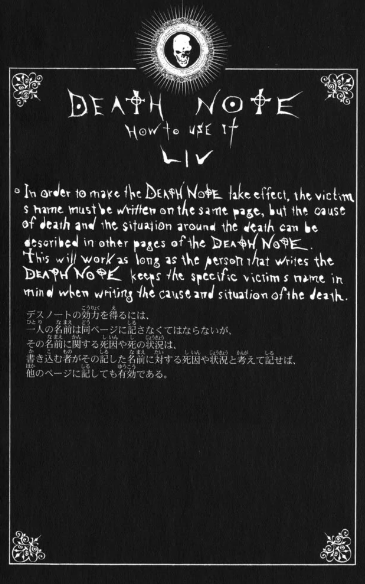 DEATH NOTE
HOW TO USE IT
LIV
In order to make the DEATH NOTE take effect, the victim
s name must be written on the same page, but the cause
of death and the situation around the death can be
described in other pages of the DEATH NOTE.
This will work as long as the person that writes the
DEATH NOTE keeps the specific victim s name in
mind when writing the cause and situation of the death.
デスノートの効力を得るには、
一人の名前は同ページに記さなくてはならないが、
その名前に関する死因や死の状況は、
書き込む者がその記した名前に対する死因や状況と考えて記せば、
他のページに記しても有効である。